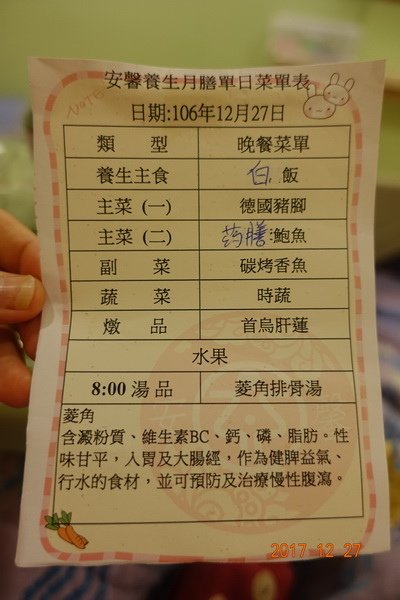 安馨養生月膳單日菜單表
NOTE
日期:106年12月27日
類 型 晚餐菜單
養生主食 白飯
主菜 (一) 德國豬腳
主菜 (二) 药膳鮑魚
副 菜 碳烤香魚
蔬 菜 時蔬
燉 品 首烏肝蓮
水果
8:00 湯品 菱角排骨湯
菱角
含澱粉質、維生素BC、鈣、磷、脂肪。性
味甘平，入胃及大腸經，作為健脾益氣、
行水的食材，並可預防及治療慢性腹瀉。
2017 12 27